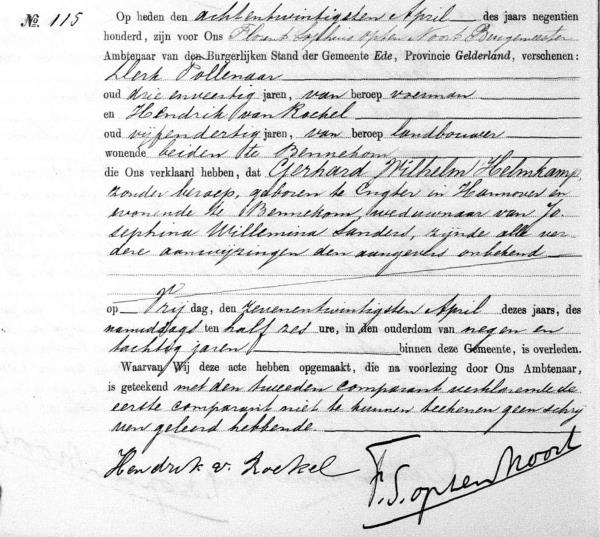 No. 115 Op heden den achtentwintigsten April des jaars negentien
honderd, zijn voor Ons Florent Sophius op ten Noort Burgemeester
Ambtenaar van den Burgerlijken Stand der Gemeente Ede, Provincie Gelderland, verschenen:
Derk Pollenaar
oud drie en veertig jaren, van beroep voerman
en Hendrik van Roekel
oud vijf en dertig jaren, van beroep landbouwer
wonende beiden te Bennekom
die Ons verklaard hebben, dat Gerhard Wilhelm Helmkamp,
zonder beroep, geboren te Engter in Hannover en
wonende te Bennekom, weduwnaar van Jo-
sephina Willemina Sanders, zijnde alle ver-
dere aanwijzingen den aangevers onbekend
op Vrijdag, den zevenentwintigsten April dezes jaars, des
namiddags ten half zes ure, in den ouderdom van negen en
tachtig jaren binnen deze Gemeente, is overleden.
Waarvan Wij deze acte hebben opgemaakt, die na voorlezing door Ons Ambtenaar,
is geteekend met den tweeden comparant verklarende de
eerste comparant niet te kunnen teekenen geen schrij
ven geleerd hebbende.
Hendrik v. Roekel F. S. op ten Noort